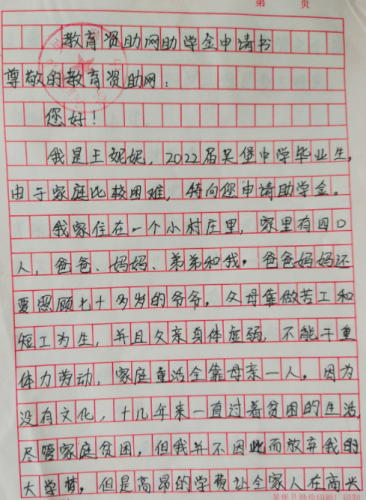 第 页
教育资助网助学金申请书
尊敬的教育资助网:
您好!
我是王妮妮,2022届吴堡中学毕业生,
由于家庭比较困难,特向您申请助学金。
我家住在一个小村庄里,家里有四口
人,爸爸、妈妈、弟弟和我。爸爸妈妈还
要照顾七十多岁的爷爷。父母靠做苦工和
短工为生,并且父亲身体虚弱,不能干重
体力劳动,家庭重活全靠母亲一人。因为
没有文化,十几年来一直过着贫困的生活
尽管家庭贫困,但我并不因此而放弃我的
大学梦。但是高昂的学费让全家人在高兴